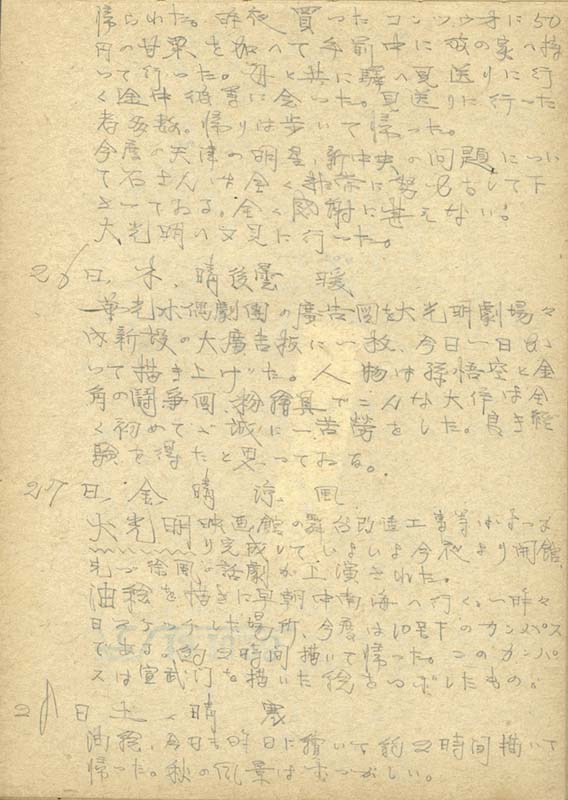 帰られた。昨夜買ったコンツウオに50
円の甘栗を加へて午前中に彼の家へ持
って行った。孫と共に驛へ見送りに行
く途中徐君に会った。見送りに行った
者多数。帰りは歩いて帰った。
今度の天津の明星、新中央の問題につい
て石さんは全く非常に努力して下
さってゐる。全く感謝に堪えない。
大光明へ又見に行った。
26日、木、晴後曇 暖
華光木偶劇團の廣告図を大光明劇場々
内新設の大廣告板に一枚、今日一日かゝ
って描き上げた。人物は孫悟空と金
角の闘争図、粉繪具でこんな大作は全
く初めてで誠に一苦労をした。良き経
験を得たと思ってゐる。
27日、金、晴 涼風
大光明映画館の舞台改造工事等は
り完成していよいよ今夜より開館、
先づ徐風の話劇が上演された。
油絵を描きに早朝中南海へ行く。一昨々
日スケッチした場所、今度は10号下のカンバス
である。約2時間描いて帰った。このカンバ
スは宣武门を描いた絵をつぶしたもの。
28日 土、晴 寒
油絵、今日も昨日に續いて約2時間描いて
帰った。秋の風景はむつかしい。